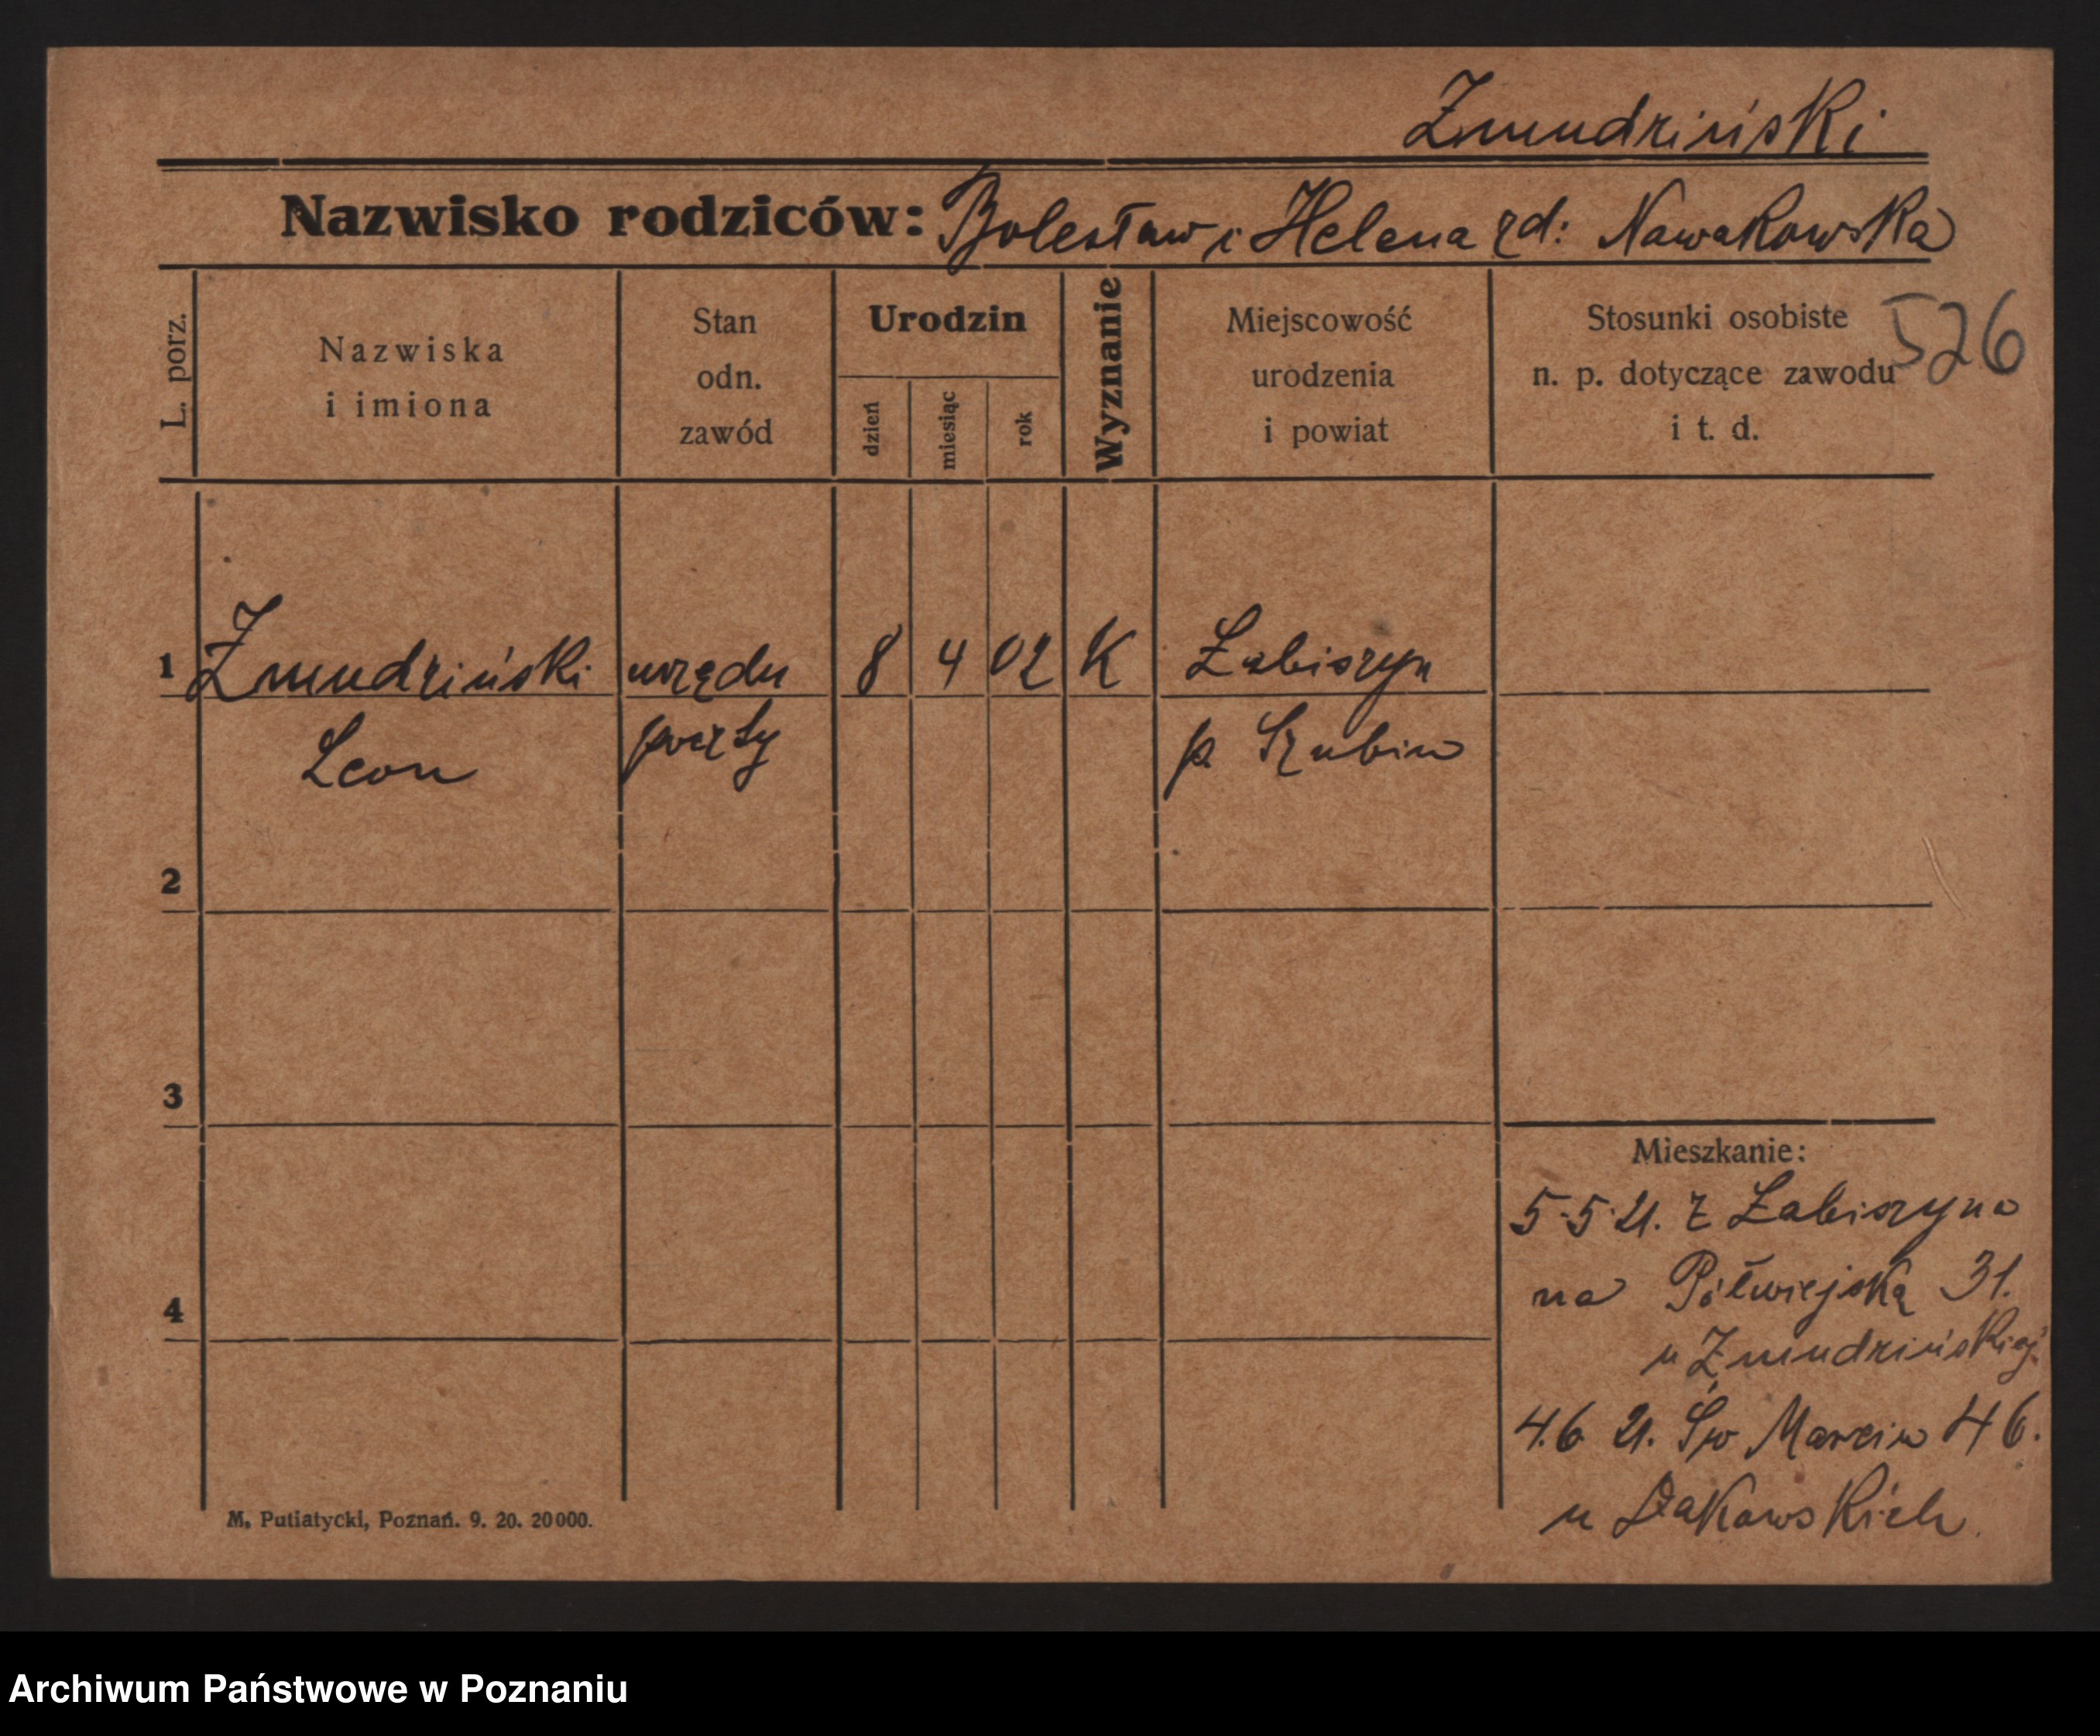 Żmudziński
Nazwisko rodziców: Bolesław i Helena zd: Nawakowska
526
L. porz.
Nazwiska
i imiona
Stan
odn.
zawód
Urodzin
dzień
miesiąc
rok
Wyznanie
Miejscowość
urodzenia
i powiat
Stosunki osobiste
n. p. dotyczące zawodu
i t. d.
1 Żmudziński urzędn 8 4 02 K Łabiszyn
Leon poczty p. Szubin
2
3
4
Mieszkanie:
5.5.21. z Łabiszyna
na Półwiejską 31.
u Żmudzińskiej
4.6 21. Św Marcin 46.
u
M. Putiatycki, Poznań. 9. 20. 20000.
Archiwum Państwowe w Poznaniu